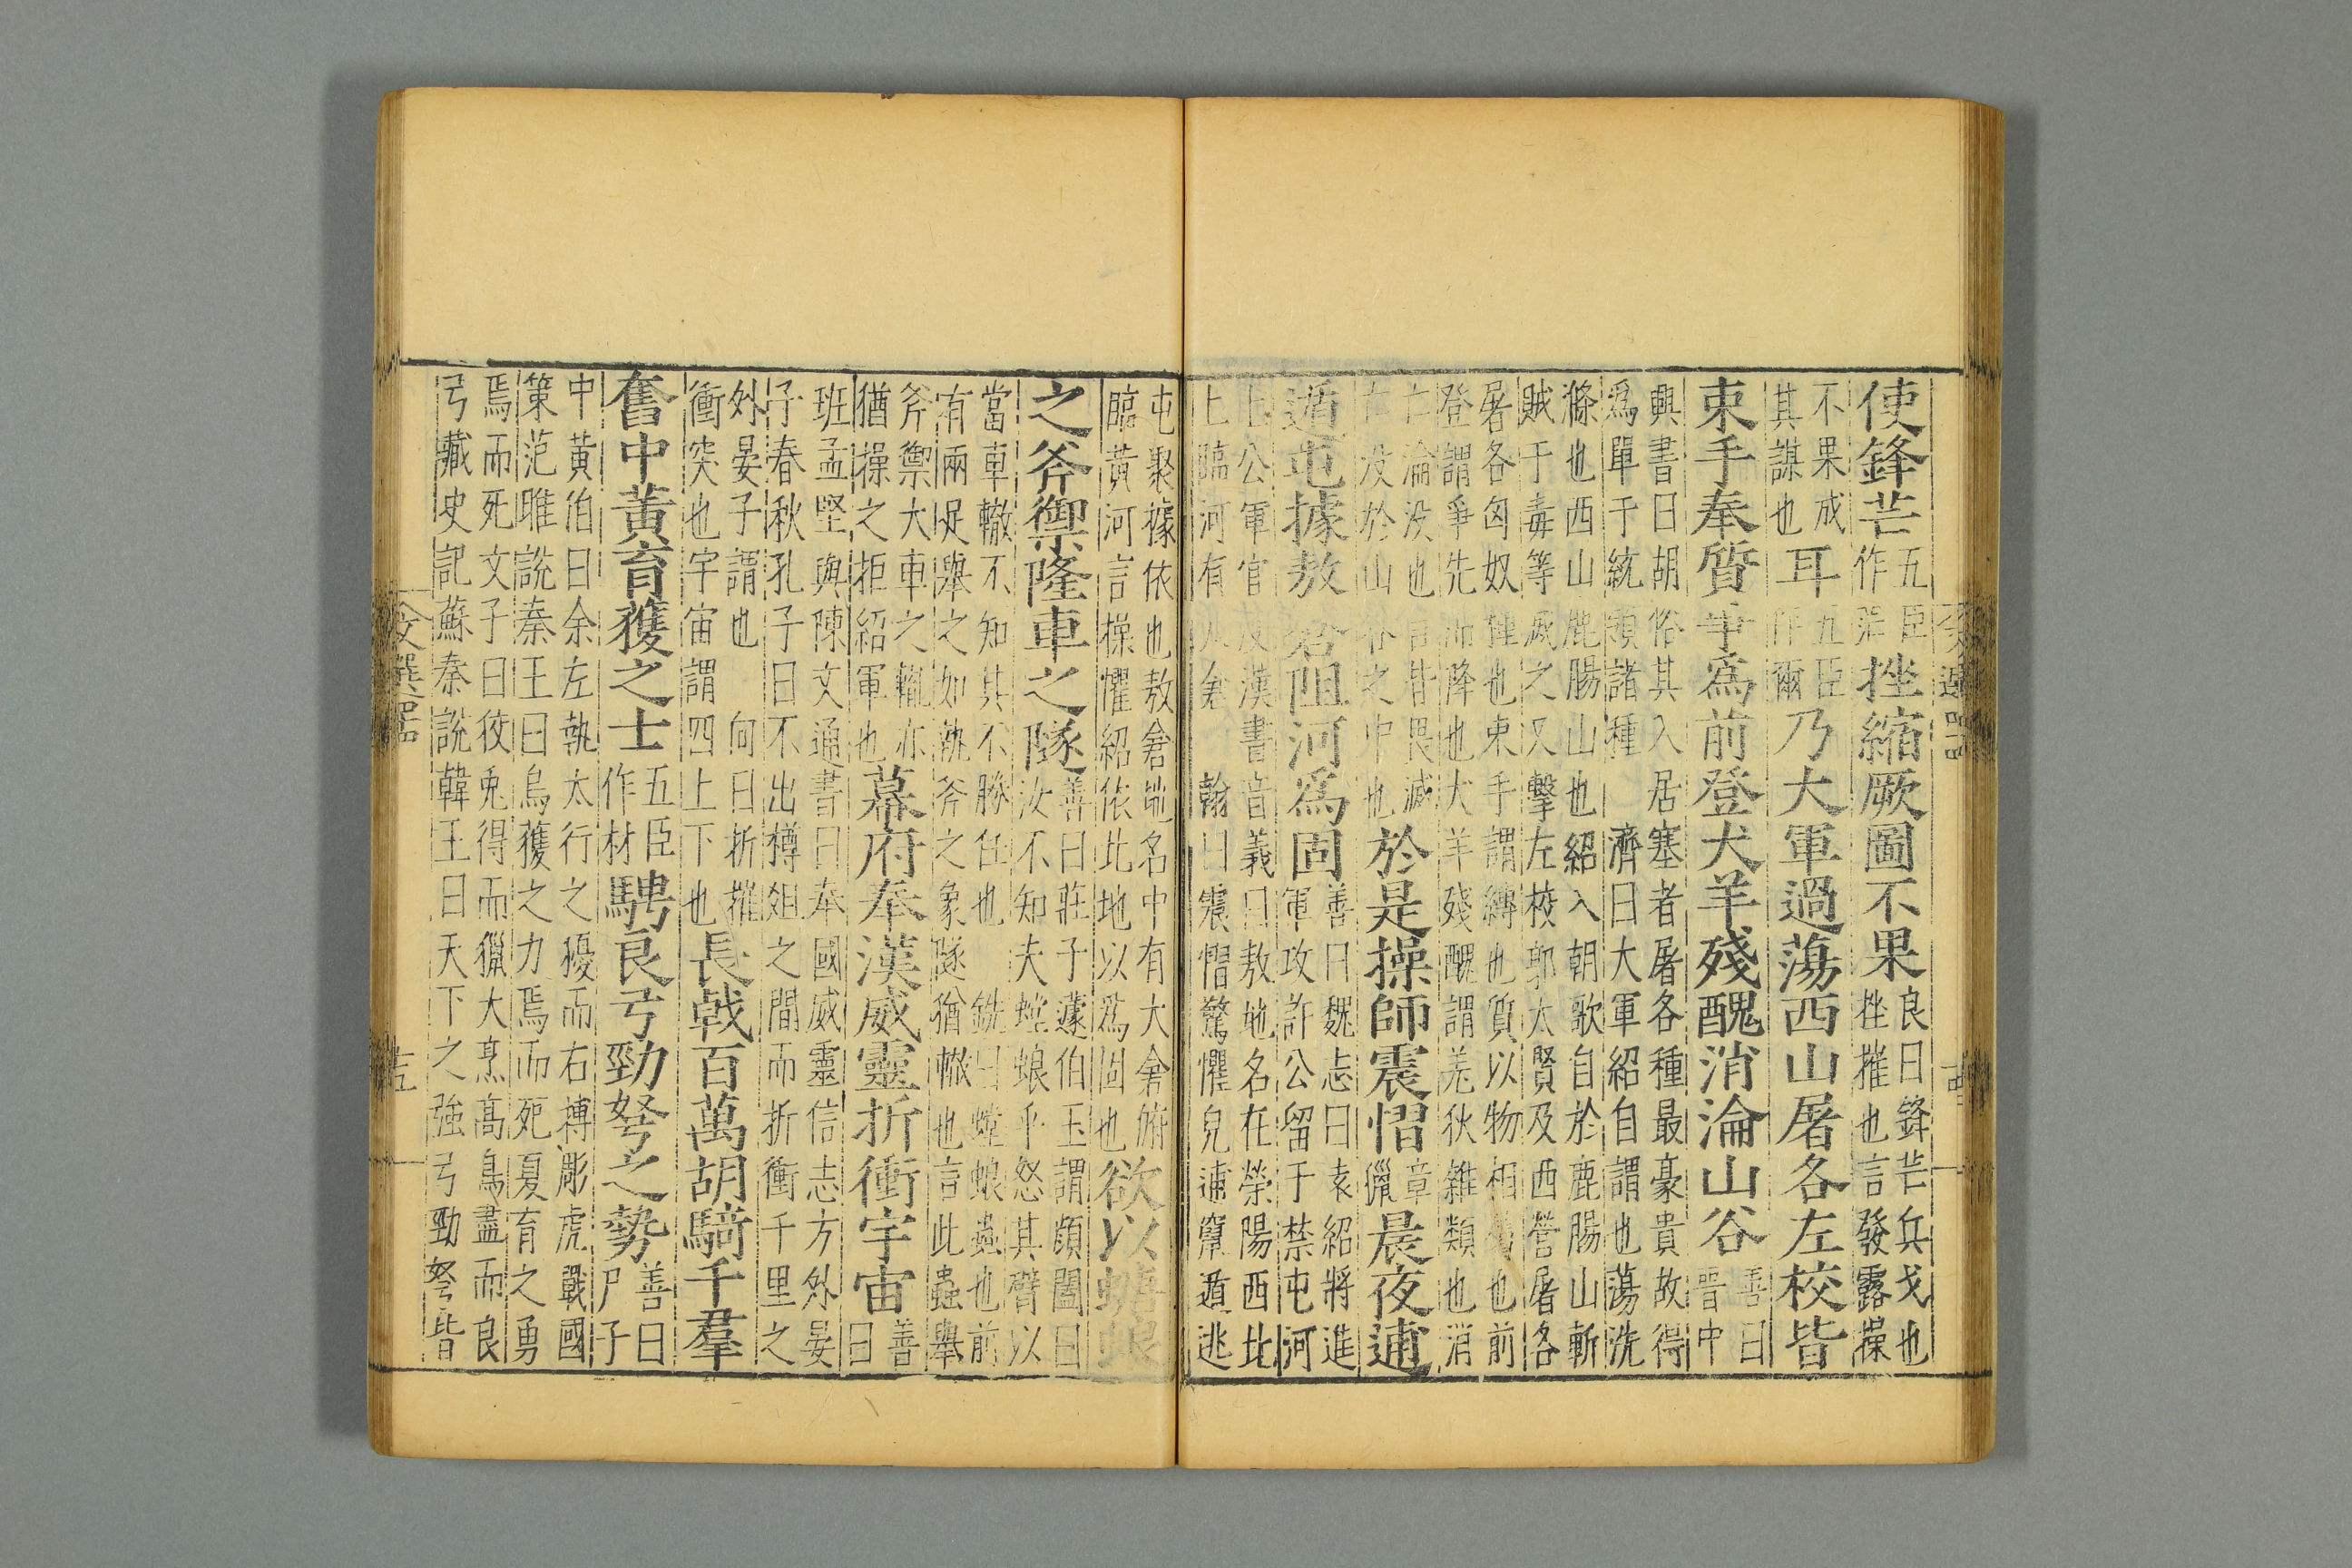 使鋒芒五臣作芒挫縮厥圖不果良曰鋒芒兵戈也挫摧也言發露操
不果成其謀也耳五臣作爾乃大軍過蕩西山屠各左校皆
束手奉質爭為前登犬羊殘醜消淪山谷善曰晋中
興書曰胡俗其入居塞者屠各種最豪貴故得為單于統領諸種濟曰大軍紹自謂也蕩洗
滌也西山鹿腸山也紹入朝歌自於鹿腸山斬賊于毒等滅之又擊左校郭太賢及西營屠各
屠各匈奴種也束手謂縛也質以物相也前登謂爭先而降也犬羊殘醜謂羌狄雜類也消
亡淪没也言皆畏滅亡没於山谷之中也於是操師震慴章儠晨夜逋
遁屯據敖倉阻河為固善曰魏志曰袁紹將進軍攻許公留于禁屯河
上公軍官渡漢書音義曰敖地名在滎陽西北上臨河有大倉翰曰震慴驚懼皃逋竄遁逃
屯聚據依也敖倉地名中有大倉俯臨黃河言操懼紹依此地以為固也欲以螗蜋
之斧禦隆車之隧善曰莊子蘧伯玉謂顏闔曰汝不知夫螳蜋乎怒其臂以
當車轍不知其不勝任也銑曰螳蜋蟲也前有兩足舉之如執斧之象隧猶轍也言此蟲舉
斧禦大車之轍亦猶操之拒紹軍也幕府奉漢威靈折衝宇宙善曰
班孟堅與陳文通書曰奉國威靈信志方外晏子春秋孔子曰不出樽俎之間而折衝千里之
外晏子謂也向曰折摧衝突也宇宙謂四上下也長戟百萬胡騎千羣
奮中黃育獲之士五臣作材騁良弓勁弩之勢善曰尸子
中黃伯曰余左執太行之獶而右搏彫虎戰國策范雎說秦王曰烏獲之力焉而死夏育之勇
焉而死文子曰狡兎得而獵犬烹高鳥盡而良弓藏史記蘇秦說韓王曰天下之強弓勁弩皆